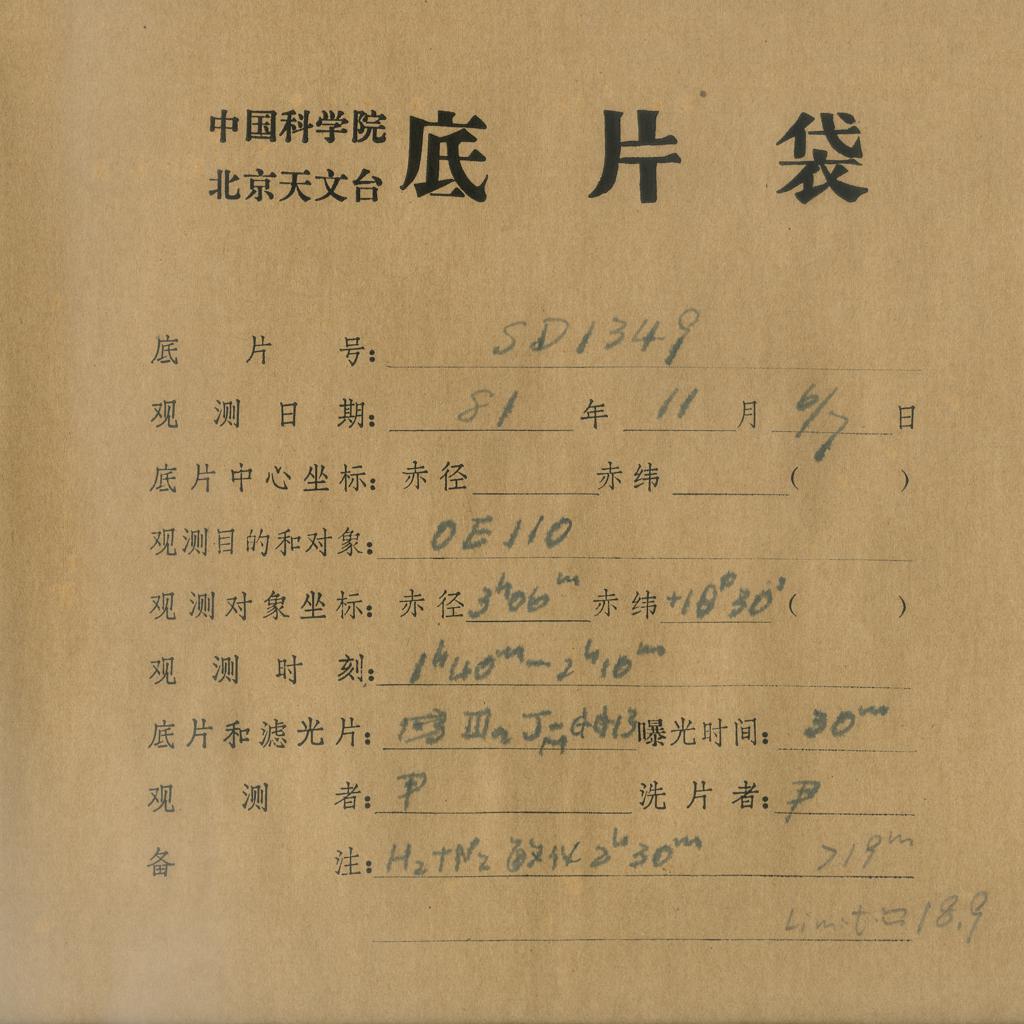 中国科学院
北京天文台
底片袋
底片号: SD1349
观测日期: 81年11月6/7日
底片中心坐标: 赤径 赤纬 ( )
观测目的和对象: OE110
观测对象坐标: 赤径 3h06m 赤纬 +18°30′ ( )
观测时刻: 1h40m-2h10m
底片和滤光片: IIIaJ 曝光时间: 30m
观测者: 洗片者:
备注: H2+N2 敏化 2h30m >19m
Limit 18.9